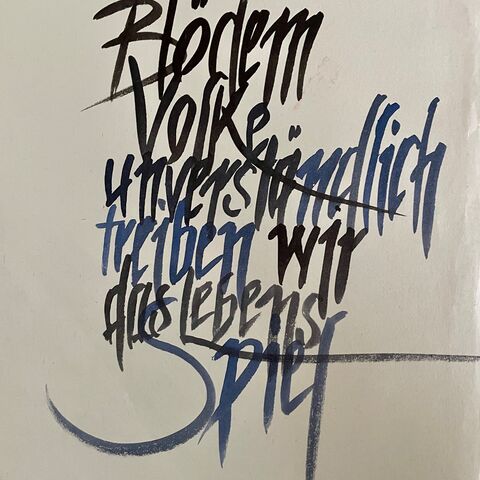 Blödem
Volke
unverständlich
treiben wir
das Lebens
Spiel